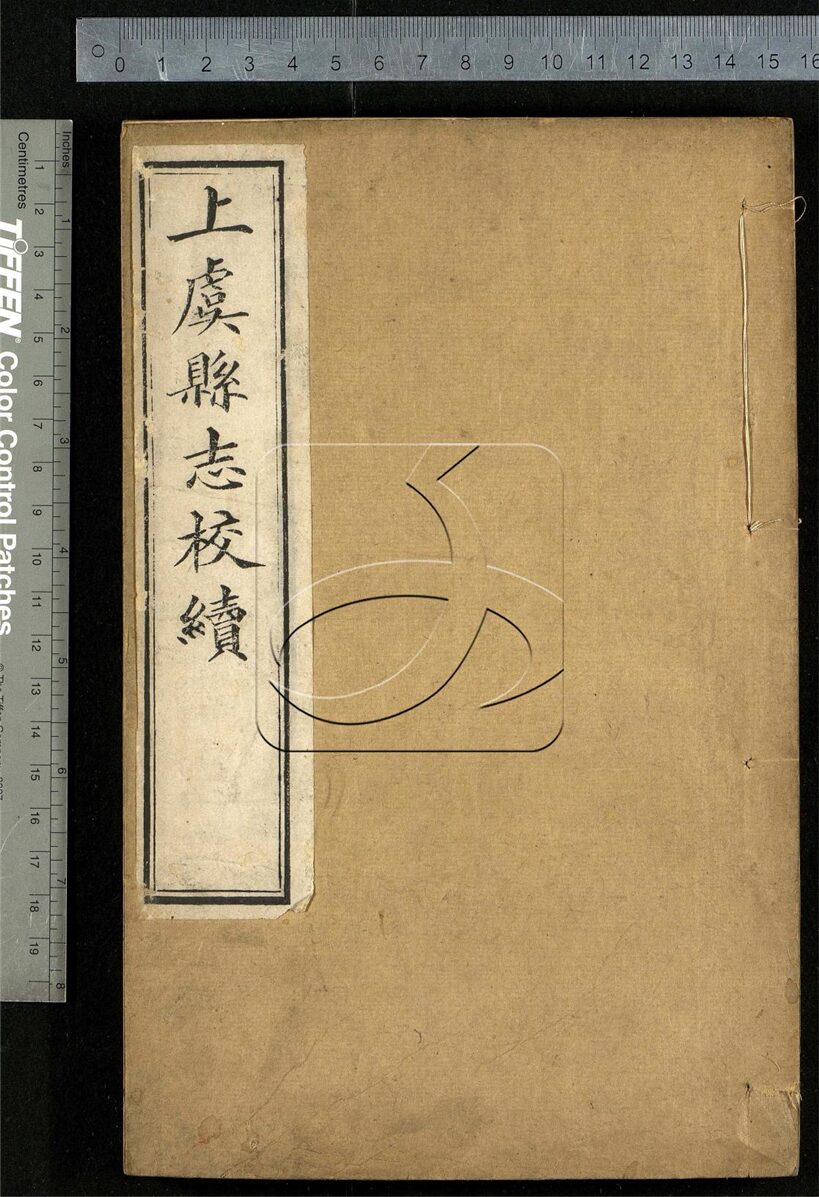 上虞縣志校續
0 1 2 3 4 5 6 7 8 9 10 11 12 13 14 15 16
Inches
1 2 3 4 5 6 7 8
Centimetres
1 2 3 4 5 6 7 8 9 10 11 12 13 14 15 16 17 18 19
TIFFEN® Color Control Patches